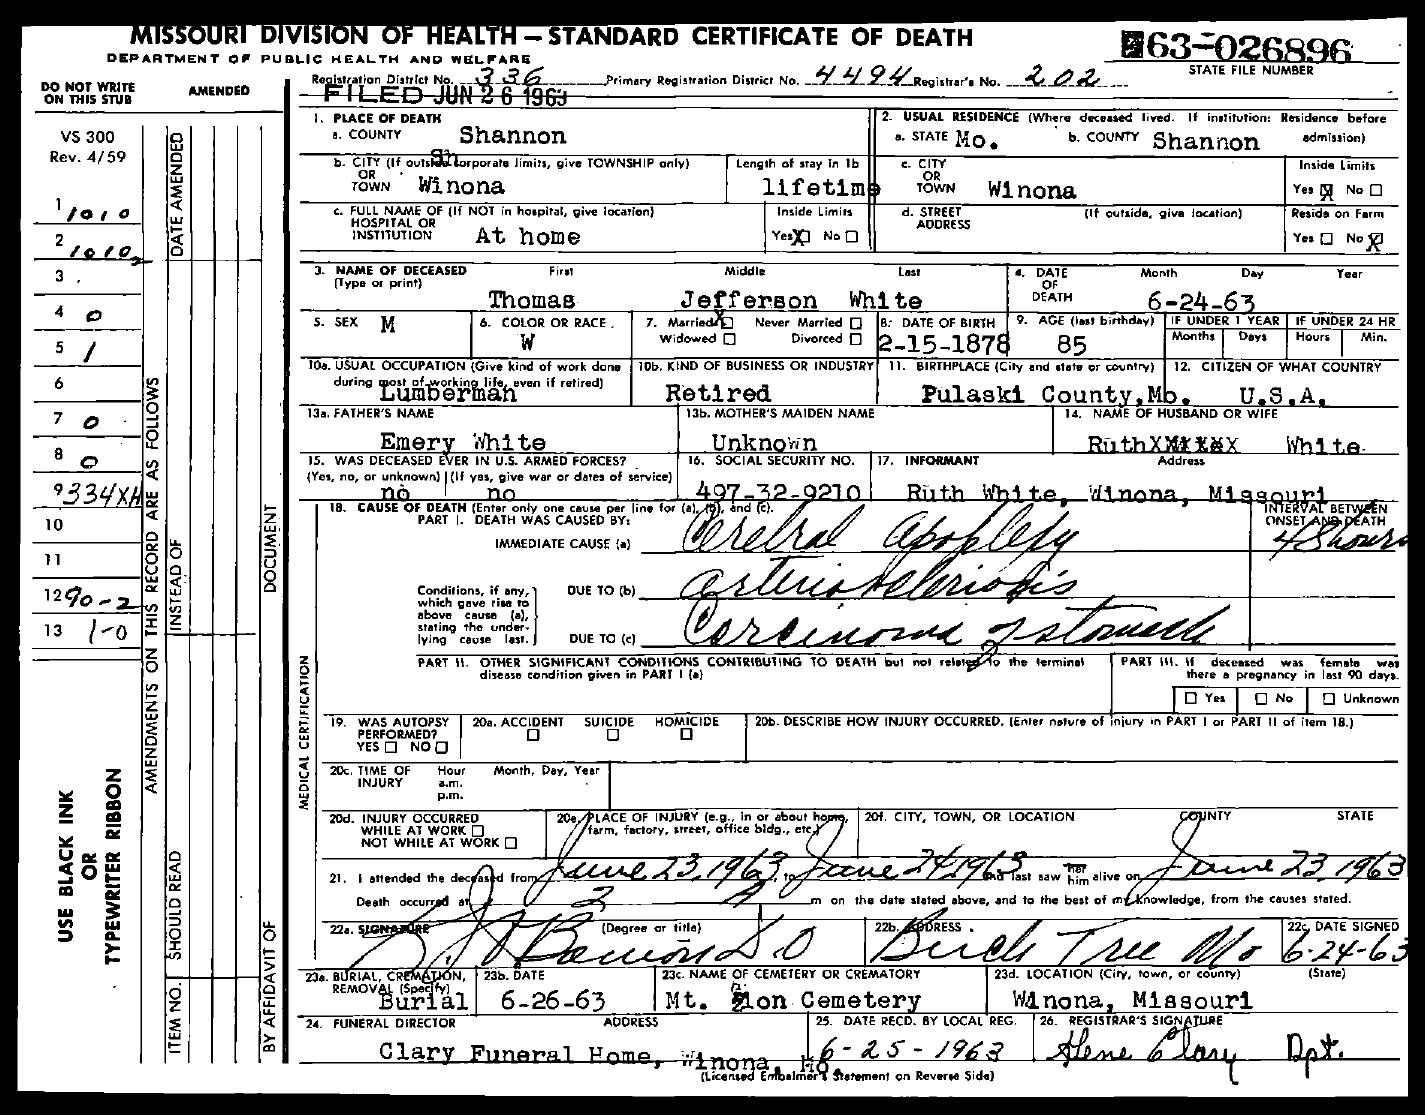 MISSOURI DIVISION OF HEALTH — STANDARD CERTIFICATE OF DEATH
63-026896
DEPARTMENT OF PUBLIC HEALTH AND WELFARE
STATE FILE NUMBER
Registration District No. 336 Primary Registration District No. 4494 Registrar's No. 202
FILED JUN 26 1963
DO NOT WRITE ON THIS STUB
AMENDED
VS 300
Rev. 4/59
1 1010
2 1010
3
4 0
5 1
6
7 0
8 0
9 334XH
10
11
12 90-2
13 1-0
USE BLACK INK
OR
TYPEWRITER RIBBON
AMENDMENTS ON THIS RECORD ARE AS FOLLOWS
DATE AMENDED
INSTEAD OF
SHOULD READ
ITEM NO.
DOCUMENT
BY AFFIDAVIT OF
MEDICAL CERTIFICATION
1. PLACE OF DEATH
a. COUNTY Shannon
2. USUAL RESIDENCE (Where deceased lived. If institution: Residence before admission)
a. STATE Mo. b. COUNTY Shannon
b. CITY (If outside corporate limits, give TOWNSHIP only)
OR
TOWN Winona
Length of stay in 1b
lifetime
c. CITY
OR
TOWN Winona
Inside Limits
Yes X No
c. FULL NAME OF (If NOT in hospital, give location)
HOSPITAL OR
INSTITUTION At home
Inside Limits
Yes X No
d. STREET ADDRESS (If outside, give location)
Reside on Farm
Yes No X
3. NAME OF DECEASED First Middle Last
(Type or print)
Thomas Jefferson White
4. DATE OF DEATH Month Day Year
6-24-63
5. SEX M
6. COLOR OR RACE.
W
7. Married X Never Married
Widowed Divorced
8. DATE OF BIRTH
2-15-1878
9. AGE (last birthday)
85
IF UNDER 1 YEAR
Months Days
IF UNDER 24 HR
Hours Min.
10a. USUAL OCCUPATION (Give kind of work done during most of working life, even if retired)
Lumberman
10b. KIND OF BUSINESS OR INDUSTRY
Retired
11. BIRTHPLACE (City and state or country)
Pulaski County,Mo.
12. CITIZEN OF WHAT COUNTRY
U.S.A.
13a. FATHER'S NAME
Emery White
13b. MOTHER'S MAIDEN NAME
Unknown
14. NAME OF HUSBAND OR WIFE
Ruth White
15. WAS DECEASED EVER IN U.S. ARMED FORCES?
(Yes, no, or unknown) (If yes, give war or dates of service)
no no
16. SOCIAL SECURITY NO.
497-32-9210
17. INFORMANT Address
Ruth White, Winona, Missouri
18. CAUSE OF DEATH (Enter only one cause per line for (a), (b), and (c).
PART I. DEATH WAS CAUSED BY:
INTERVAL BETWEEN ONSET AND DEATH
IMMEDIATE CAUSE (a) Cerebral apoplexy 48 hours
Conditions, if any, which gave rise to above cause (a), stating the underlying cause last.
DUE TO (b) arteriosclerosis
DUE TO (c) Carcinoma of stomach
PART II. OTHER SIGNIFICANT CONDITIONS CONTRIBUTING TO DEATH but not related to the terminal disease condition given in PART I (a)
PART III. If deceased was female was there a pregnancy in last 90 days.
Yes No Unknown
19. WAS AUTOPSY PERFORMED?
YES NO
20a. ACCIDENT SUICIDE HOMICIDE
20b. DESCRIBE HOW INJURY OCCURRED. (Enter nature of injury in PART I or PART II of item 18.)
20c. TIME OF INJURY Hour a.m. p.m. Month, Day, Year
20d. INJURY OCCURRED
WHILE AT WORK
NOT WHILE AT WORK
20e. PLACE OF INJURY (e.g., in or about home, farm, factory, street, office bldg., etc.)
20f. CITY, TOWN, OR LOCATION COUNTY STATE
21. I attended the deceased from June 23, 1963, to June 24, 1963 and last saw her him alive on June 23, 1963
Death occurred at 3 A m on the date stated above, and to the best of my knowledge, from the causes stated.
22a. SIGNATURE (Degree or title)
D O
22b. ADDRESS.
Birch Tree Mo
22c. DATE SIGNED
6-24-63
23a. BURIAL, CREMATION, REMOVAL (Specify)
Burial
23b. DATE
6-26-63
23c. NAME OF CEMETERY OR CREMATORY
Mt. Zion Cemetery
23d. LOCATION (City, town, or county) (State)
Winona, Missouri
24. FUNERAL DIRECTOR ADDRESS
Clary Funeral Home, Winona, Mo.
25. DATE RECD. BY LOCAL REG.
6-25-1963
26. REGISTRAR'S SIGNATURE
Gene Clary Dpt.
(Licensed Embalmer's Statement on Reverse Side)